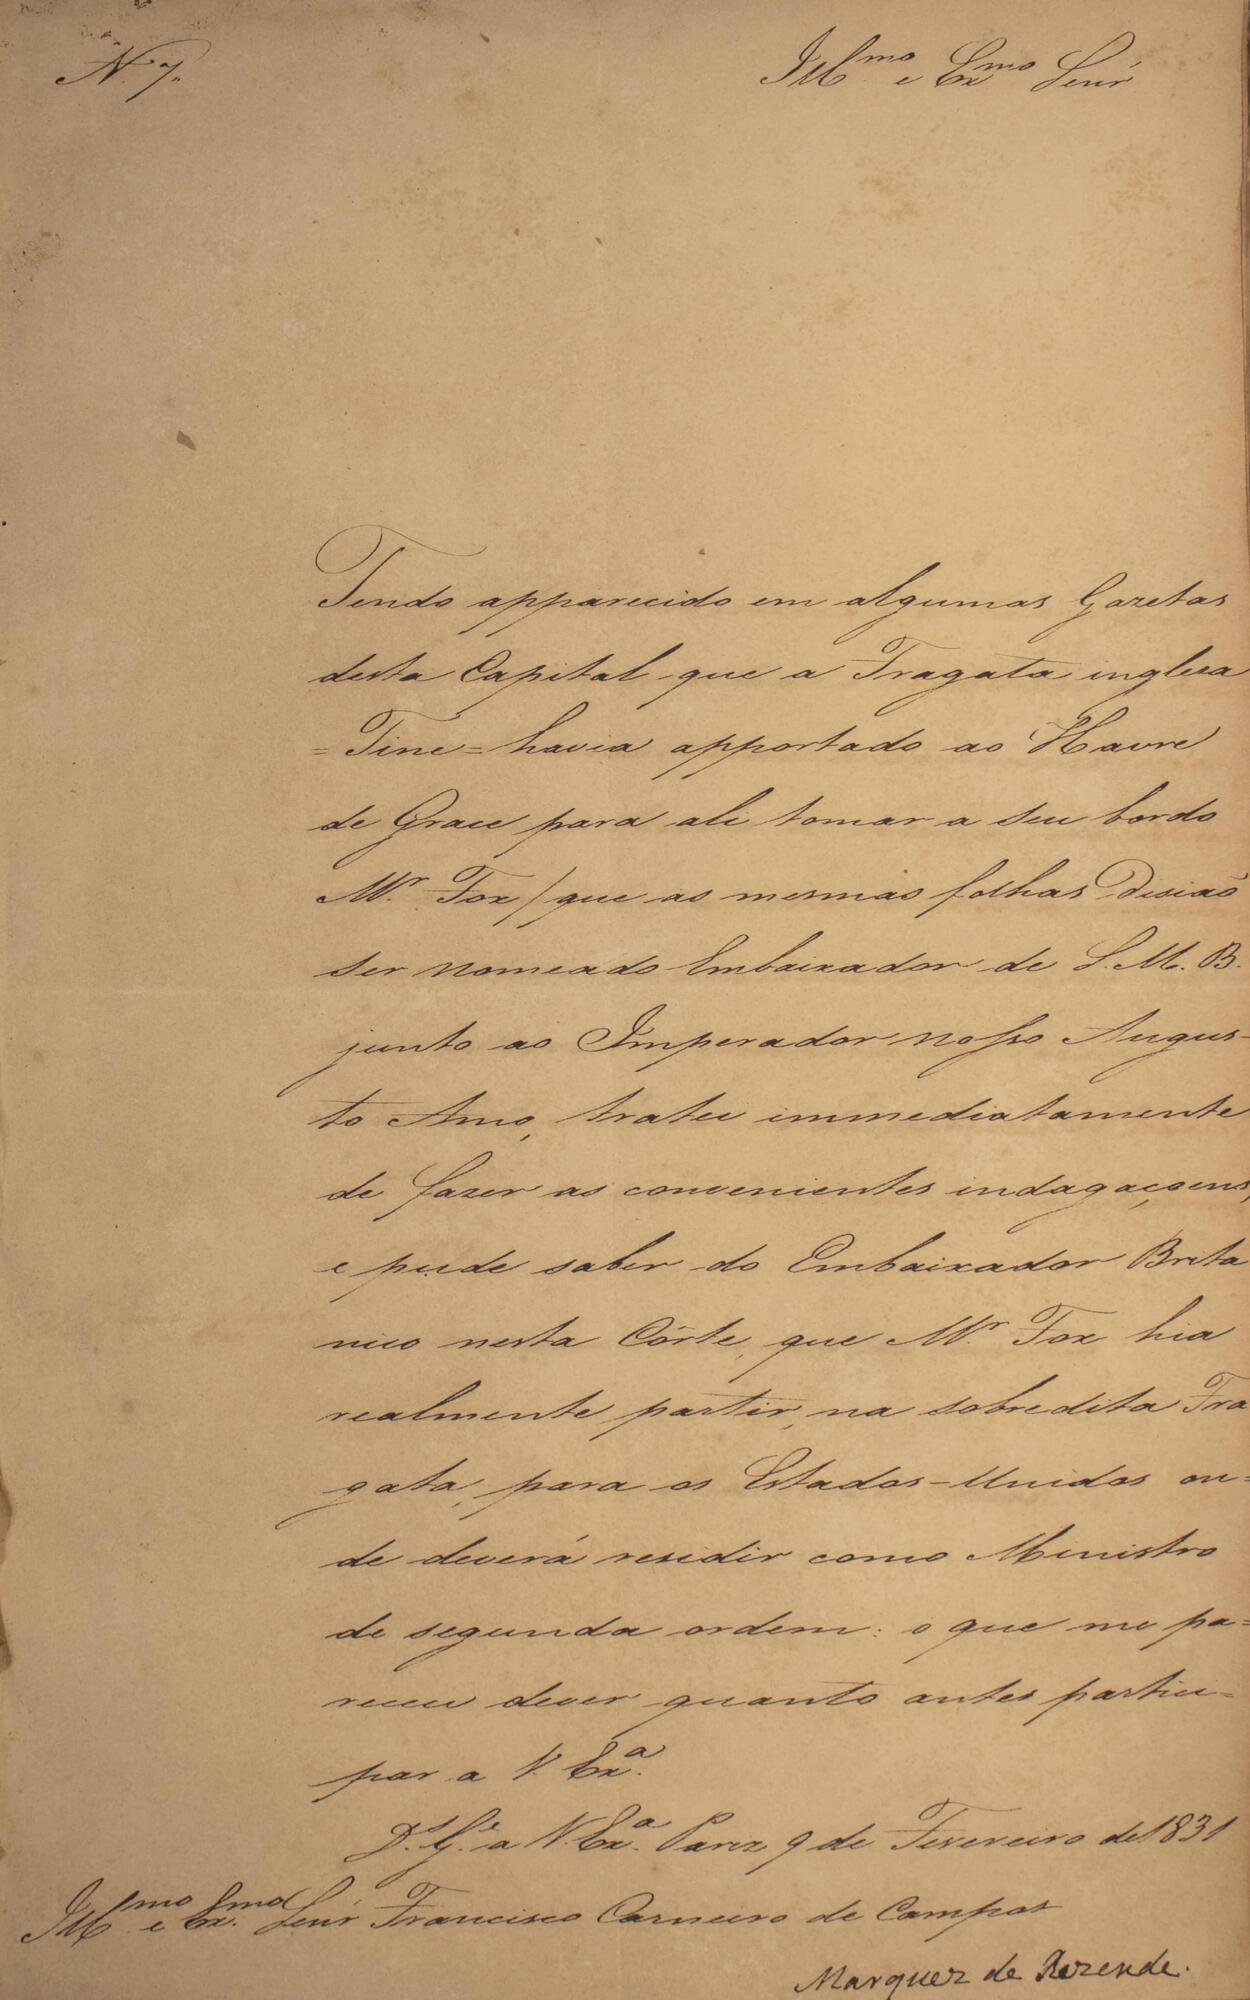 N. 7.
Ill.mo e Ex.mo Senr
Tendo apparecido em algumas Gazetas
desta Capital que a Fragata inglesa
= Tine = havia apportado ao Havre
de Grace para ali tomar a seu bordo
Mr. Fox / que as mesmas folhas disião
ser nomeado Embaixador de S. M. B.
junto ao Imperador nosso Augus-
to Amo, tratei immediatamente
de fazer as convenientes indagaçoens,
e pude saber do Embaixador Brita
nico nesta Côrte, que Mr. Fox hia
realmente partir, na sobredita Fra
gata, para os Estados-Unidos on=
de deverá residir como Ministro
de segunda ordem: o que me pa=
receu dever quanto antes partici=
par a V. Ex.a
D.s G.e a V. Ex.a Parez 9 de Fevereiro de 1831
Ill.mo e Ex.mo Senr Francisco Carneiro de Campos
Marquez de Rezende.